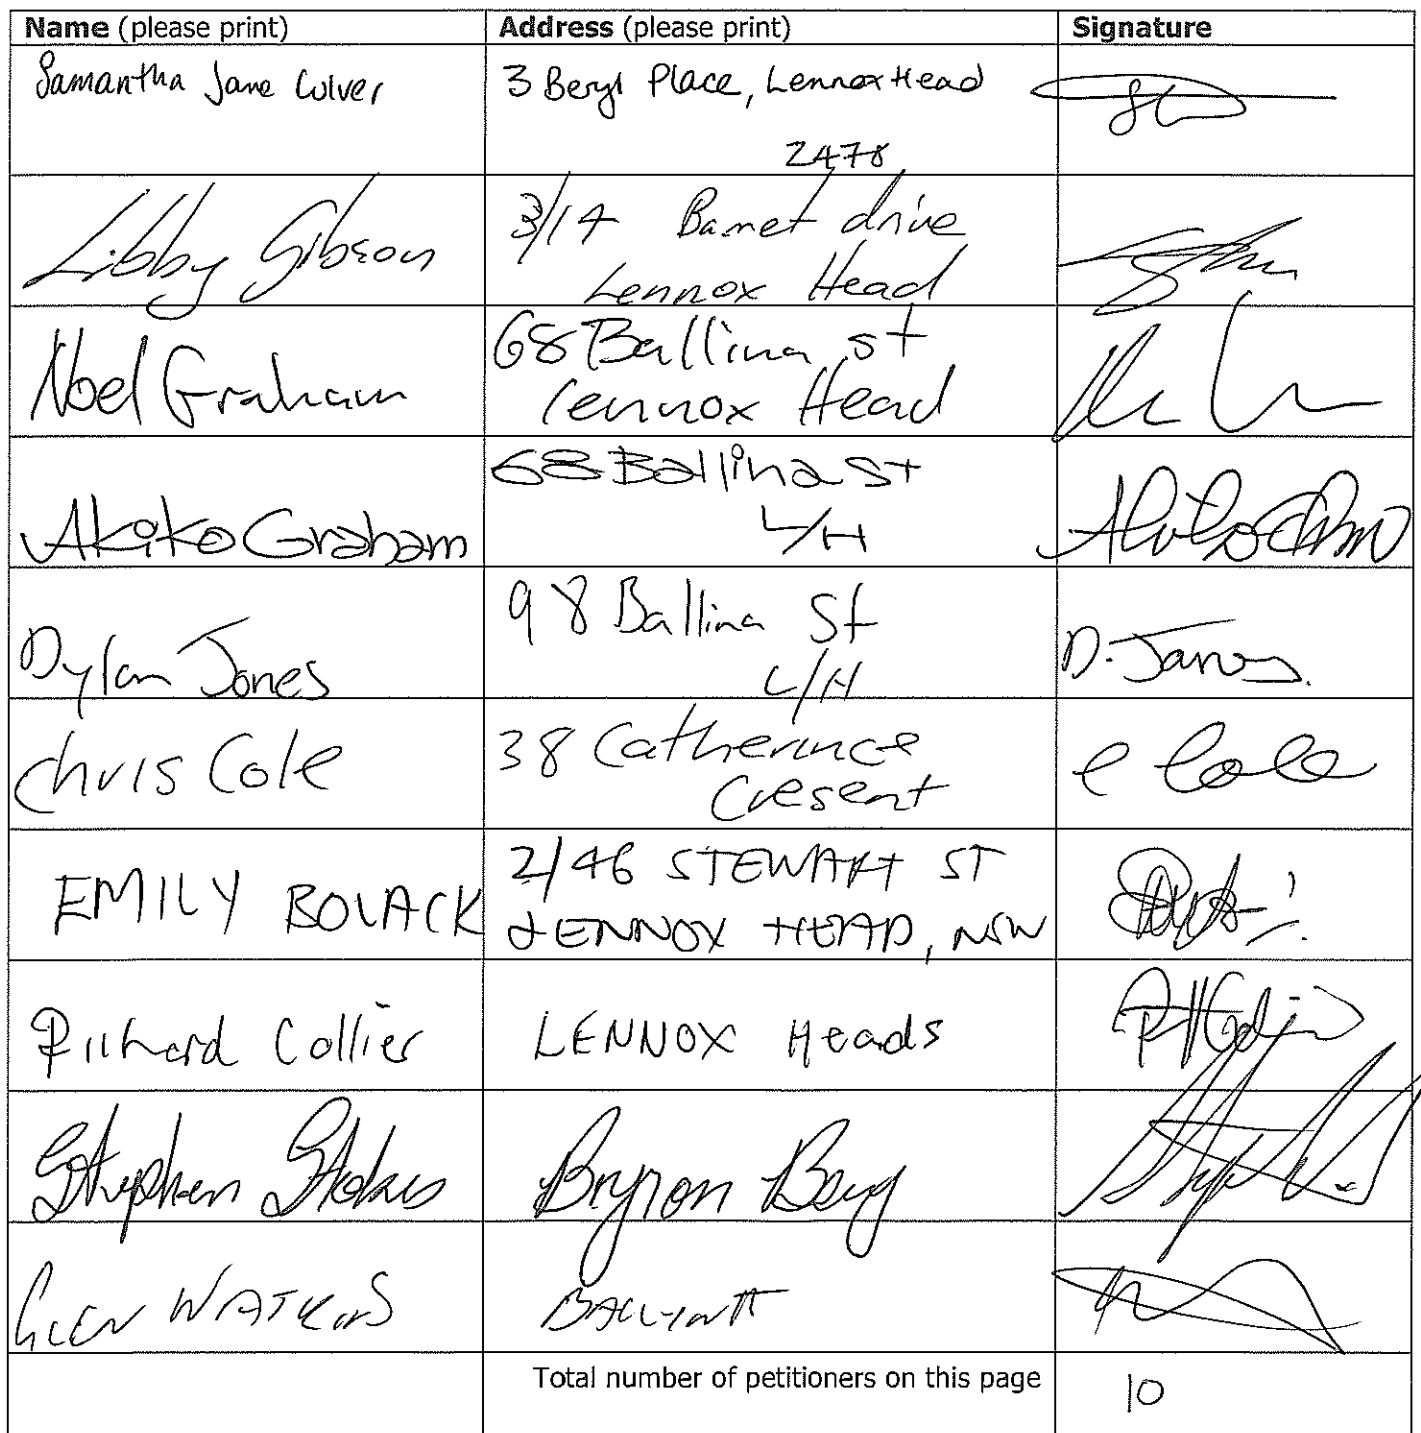 Name (please print) Address (please print) Signature
Samantha Jane Culver 3 Beryl Place, Lennox Head
2478
Libby Gibson 3/14 Barnet drive
Lennox Head
Noel Graham 68 Ballina st
lennox Head
Akiko Graham 68 Ballina St
L/H
Dylan Jones 98 Ballina St D. Jones.
L/H
Chris Cole 38 Catherince c Cole
Cresent
EMILY BOLACK 2/46 STEWART ST
LENNOX HEAD, NSW
Richard Collier LENNOX Heads
Stephen Stokes Byron Bay
GLEN WATKINS BALLINA
Total number of petitioners on this page 10